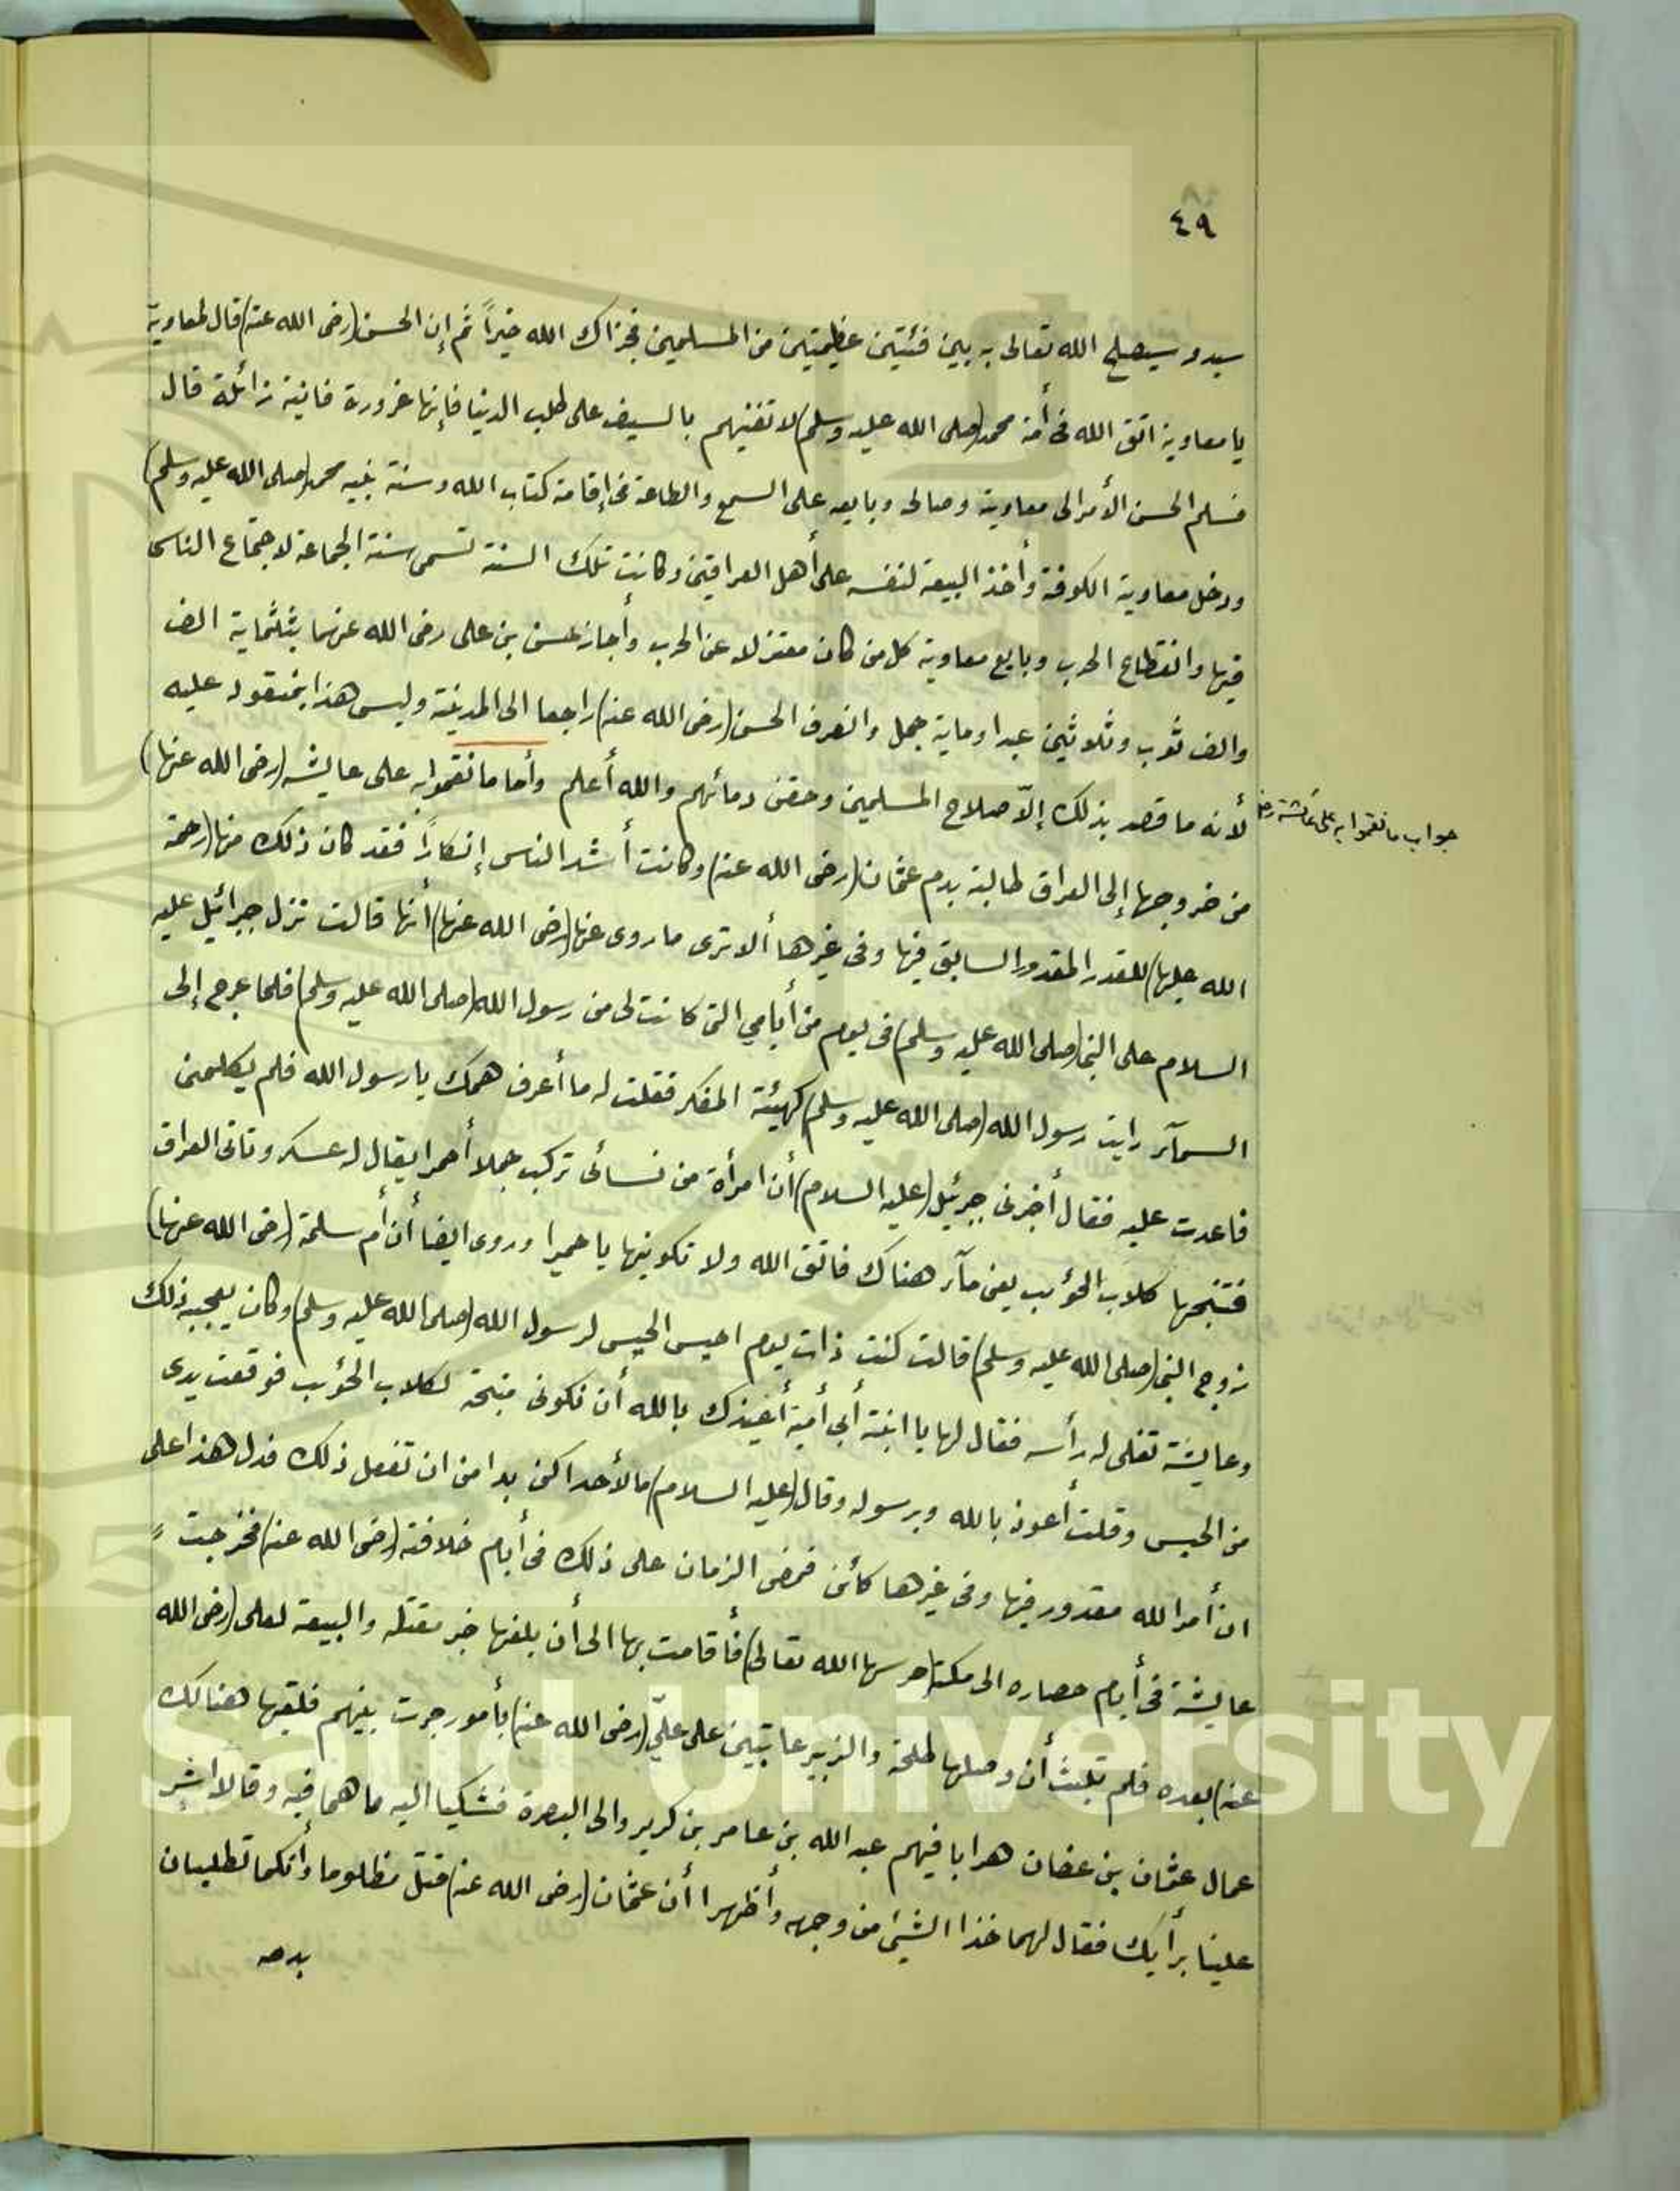 ٤٩
سيد وسيصلح الله تعالى به بين فئتين عظيمتين من المسلمين فجزاك الله خيراً ثم إن الحسن (رضى الله عنه) قال لمعاوية
يا معاوية اتق الله فى أمة محمد (صلى الله عليه وسلم) لا تفنيهم بالسيف على طلب الدنيا فإنها غرورة فانية زائلة قال
فسلم الحسن الأمر الى معاوية وصالحه وبايعه على السمع والطاعة فى إقامة كتاب الله وسنة نبيه محمد (صلى الله عليه وسلم)
ودخل معاوية الكوفة وأخذ البيعة لنفسه على أهل العراقين وكانت تلك السنة تسمى سنة الجماعة لاجتماع الناس
فيها وانقطاع الحرب وبايع معاوية كل من كان معتزلا عن الحرب وأجاز حسن بن على رضى الله عنهما بثلثماية الف
والف ثوب وثلاثين عبدا وماية جمل وانصرف الحسن (رضى الله عنه) راجعا الى المدينة وليس هذا ينقود عليه
لأنه ما قصد بذلك إلاّ صلاح المسلمين وحقن دمائهم والله أعلم وأما ما نقموا به على عايشه (رضى الله عنها)
جواب ما نقموا به على عائشة رضـ
من خروجها إلى العراق طالبة بدم عثمان (رضى الله عنه) وكانت أشد الناس إنكاراً فقد كان ذلك منها (رحمة
الله عليها) للقدر المقدور السابق فيها وفى غيرها ألا ترى ما روى عنها (رضى الله عنها) أنها قالت نزل جبرائيل عليه
السلام على النبى (صلى الله عليه وسلم) فى يوم من أيامي التى كانت لى من رسول الله (صلى الله عليه وسلم) فلما عرج إلى
السمآء رايت رسول الله (صلى الله عليه وسلم) كهيئة المفكر فقلت له ما أعرف همك يا رسول الله فلم يكلمنى
فاعدت عليه فقال أخبرنى جبرئيل (عليه السلام) أن امرأة من نسائى تركب جملا أحمرا يقال له عسكر وتاتى العراق
فتنبحها كلاب الحؤب يعنى مآء هناك فاتق الله ولا تكونيها يا حميرا وروى ايضا أن أم سلمة (رضى الله عنها)
زوج النبى (صلى الله عليه وسلم) قالت كنت ذات يوم احيس الحيس لرسول الله (صلى الله عليه وسلم) وكان يعجبه ذلك
وعايشة تفلى له رأسه فقال لها يا ابنة أبي أمية أعيذك بالله أن تكونى منبحة لكلاب الحؤب فوقعت يدى
من الحيس وقلت أعوذ بالله وبرسوله وقال (عليه السلام) ما لأحداكن بدا من ان تفعل ذلك فدل هذا على
ان أمر الله مقدور فيها وفى غيرها كأئن فمضى الزمان على ذلك فى أيام خلافته (رضى الله عنه) فخرجت
عايشة فى أيام حصاره الى مكة (حرسها الله تعالى) فأقامت بها الى أن بلغها خبر مقتله والبيعة لعلى (رضى الله
عنه) بعده فلم تلبث أن وصلها طلحة والزبير عاتبين على علىّ (رضى الله عنه) بأمور جرت بينهم فلقيها هنالك
عمال عثمان بن عفان هرابا فيهم عبد الله بن عامر بن كرير والى البصرة فشكيا اليه ما هما فيه وقالا اشر
علينا برأيك فقال لهما خذا الشيئ من وجهه وأظهرا أن عثمان (رضى الله عنه) قتل مظلوما وأنكما تطلبان
بدمه